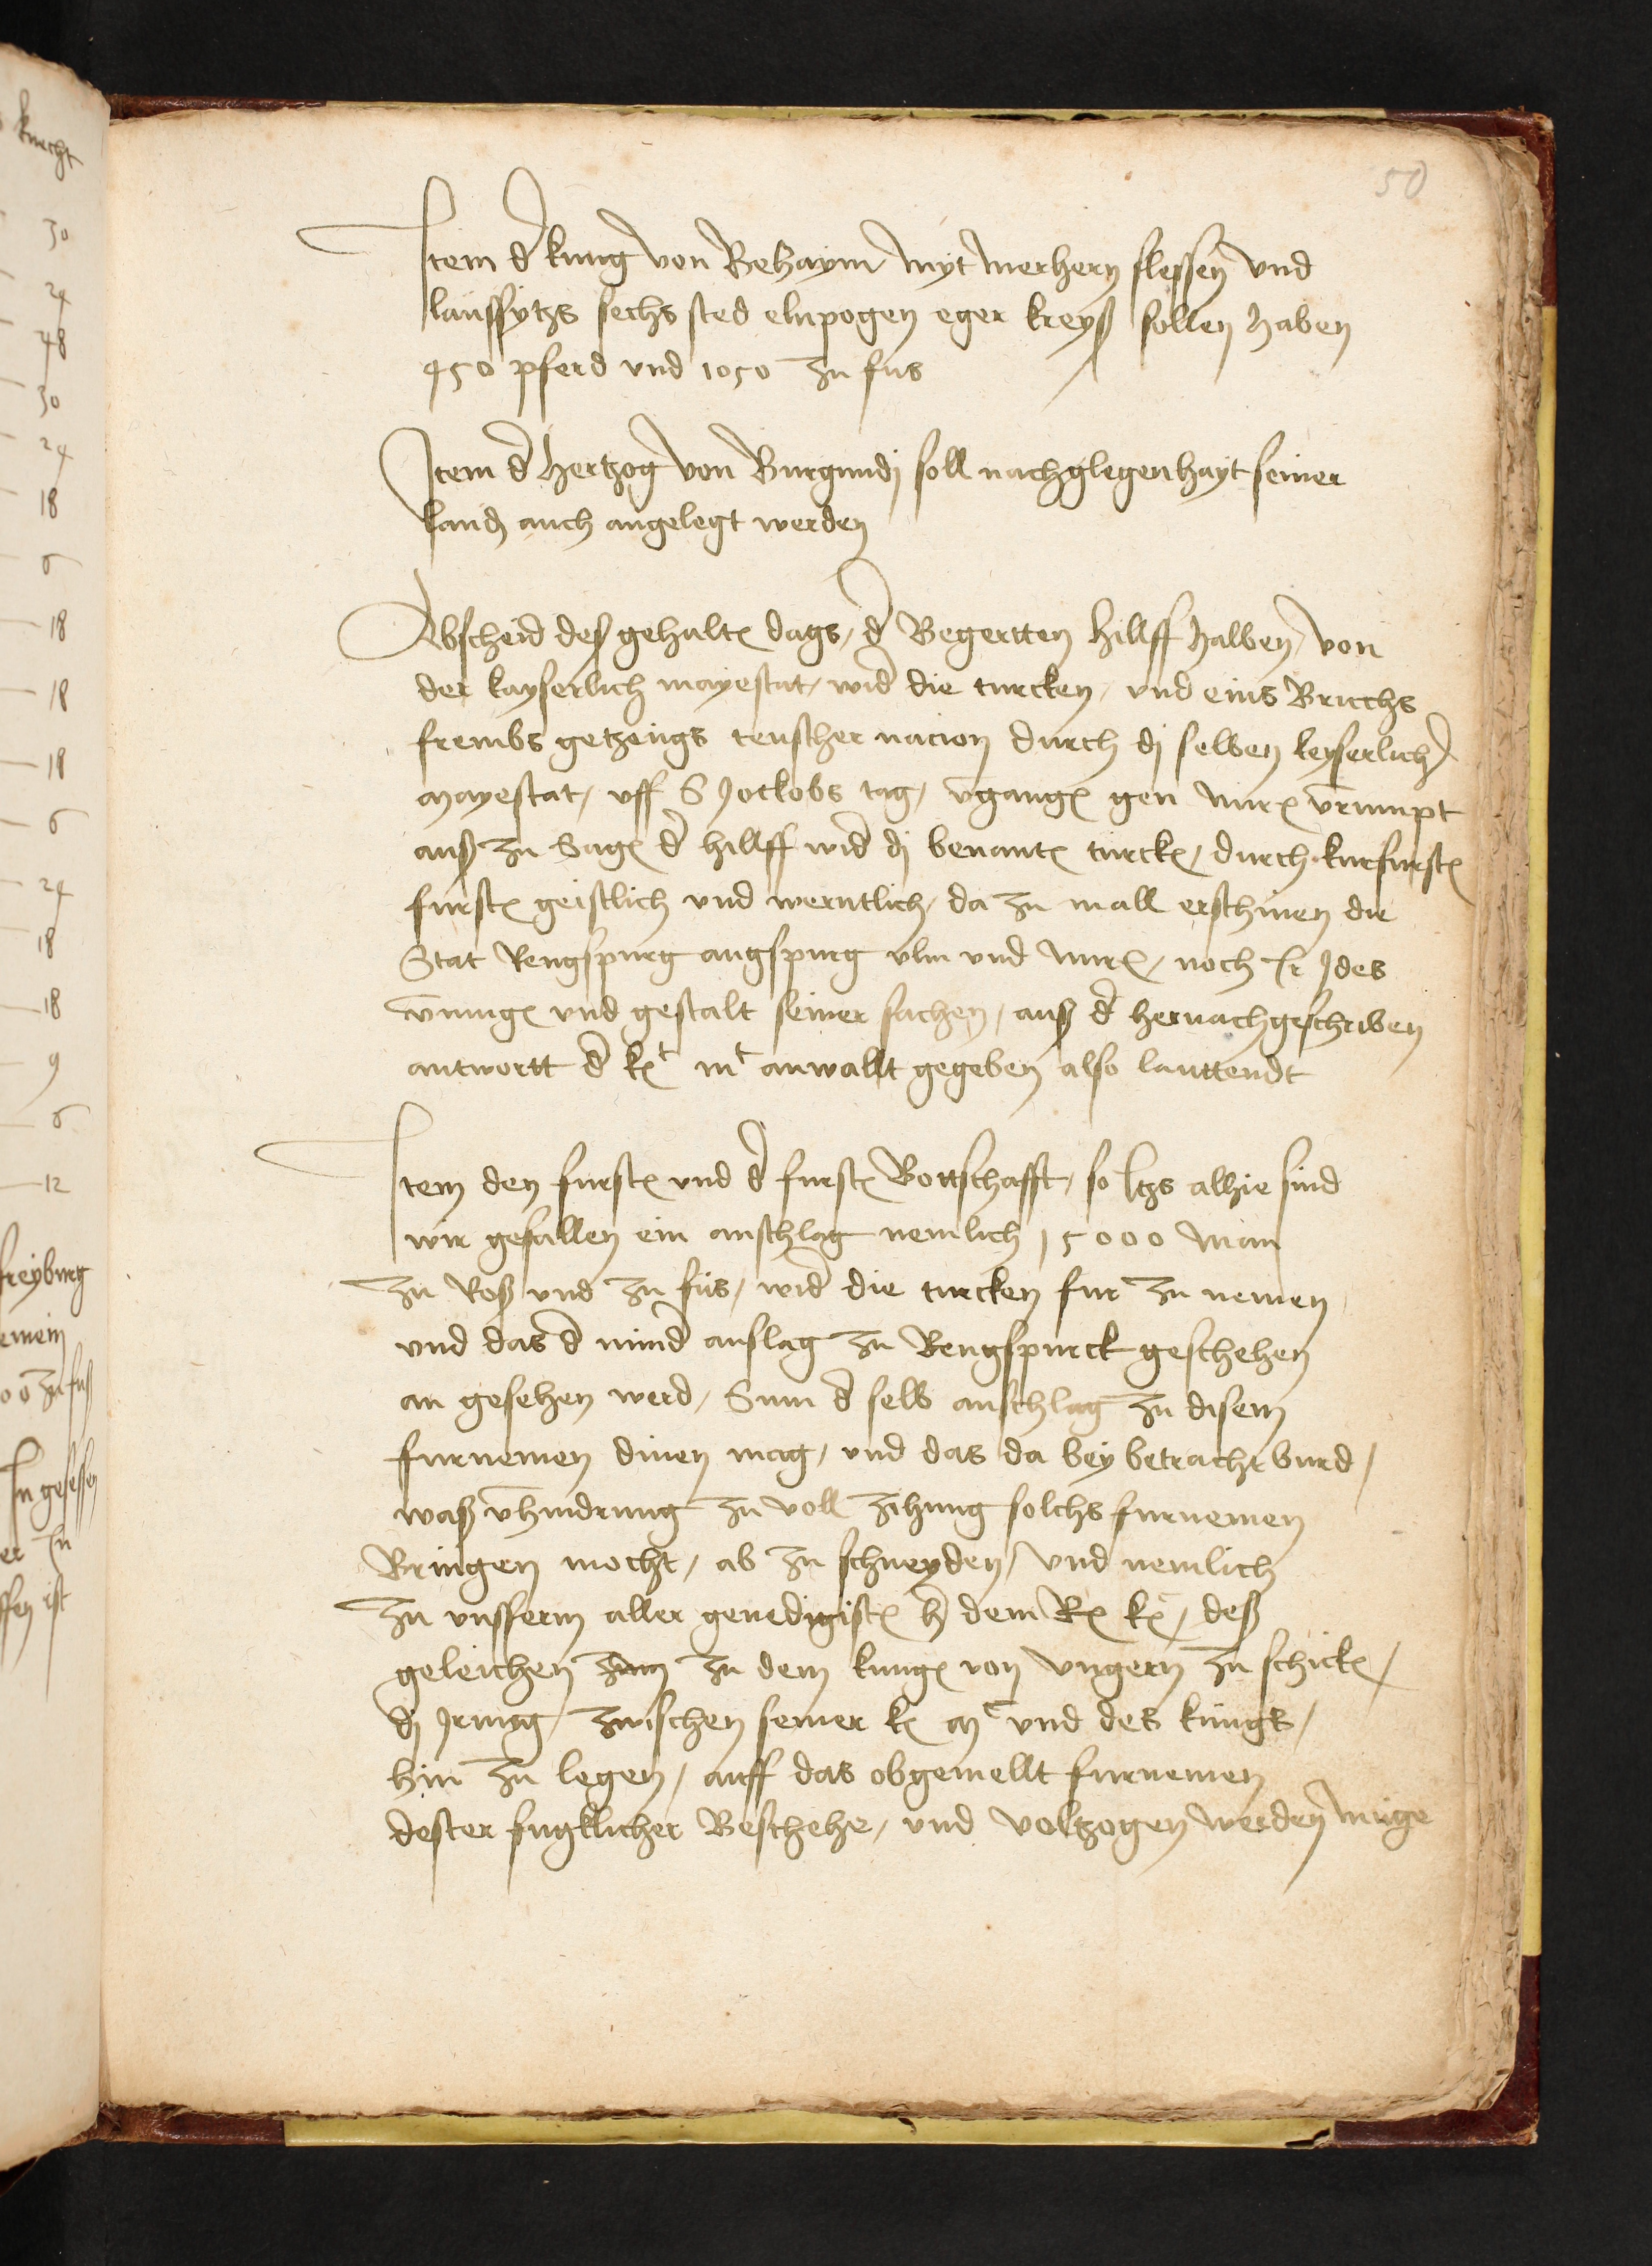 50
Item d kunig von Behaym myt merhern slesien vnd
laussytzs sechs sted elnpogen eger kreyß sollen haben
450 pferd vnd 1050 zu fus
Item d Hertzog von Burgundj soll nach glegenhayt seiner
land auch angelegt werden
Abscheid deß gehaltn dags / d Begertten hillff halben / von
der kayserlich mayestat / wid die turcken / vnd eins Bruchs
frembs getzeugs teuscher nacion durch dj selben keyserlich
mayestat / vff S Jockobs tag / vgangn gen nurn vrumpt
auß zu Sagn d hillff wid dj benantn turckn / durch kurfurstn
furstn geistlich vnd werntlich / da zu mall erschinen die
Stat Rengspurg augspurg vlm vnd nurn / noch Ir Jdes
vmugn vnd gestalt seiner sachen / auß d hernachgeschriben
antwortt d kn mt anwallt gegeben also lauttendt
Item den furstn vnd d furstn Bottschafft / so Itzs alhie sind
wir gefallen ein anschlag nemlich 15000 man
zu Roß vnd zu fus / wid die turcken fur zu nemen
vnd das d mind anslag zu Rengspurck geschehen
an gesehen werd / Sunn d selb anschlag zu disem
furnemen dinen mag / vnd das da bey betracht burd /
waß vhindrung zu voll zihung solchs furnemen
Bringen mocht / ab zu schneyden / vnd nemlich
zu vnsserm aller genedigistn h dem Rn kn / deß
geleichen zu dem kungn von vngern zu schickn /
dj Jrung / zwischen seiner kn mt vnd des kungs /
hin zu legen / auff das obgemellt furnemen
dester fugklicher Beschehe / vnd voltzogen werden muge
knecht
30
24
48
30
24
18
6
18
18
18
6
24
18
18
9
6
12
freyburg
emein
00 zu fuß
In gesessen
er zu
ffen ist